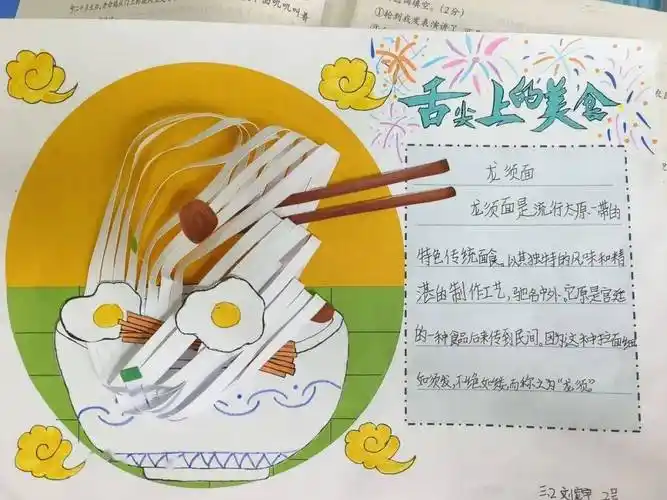 ①轮到我发表演讲了
舌尖上的美食
龙须面
龙须面是流行太原一带的
特色传统面食,以其独特的风味和精
湛的制作工艺,驰名中外,它原是宫廷
的一种食品后来传到民间。因为这种拉面细
如须发,不绝如缕,而称之为“龙须”